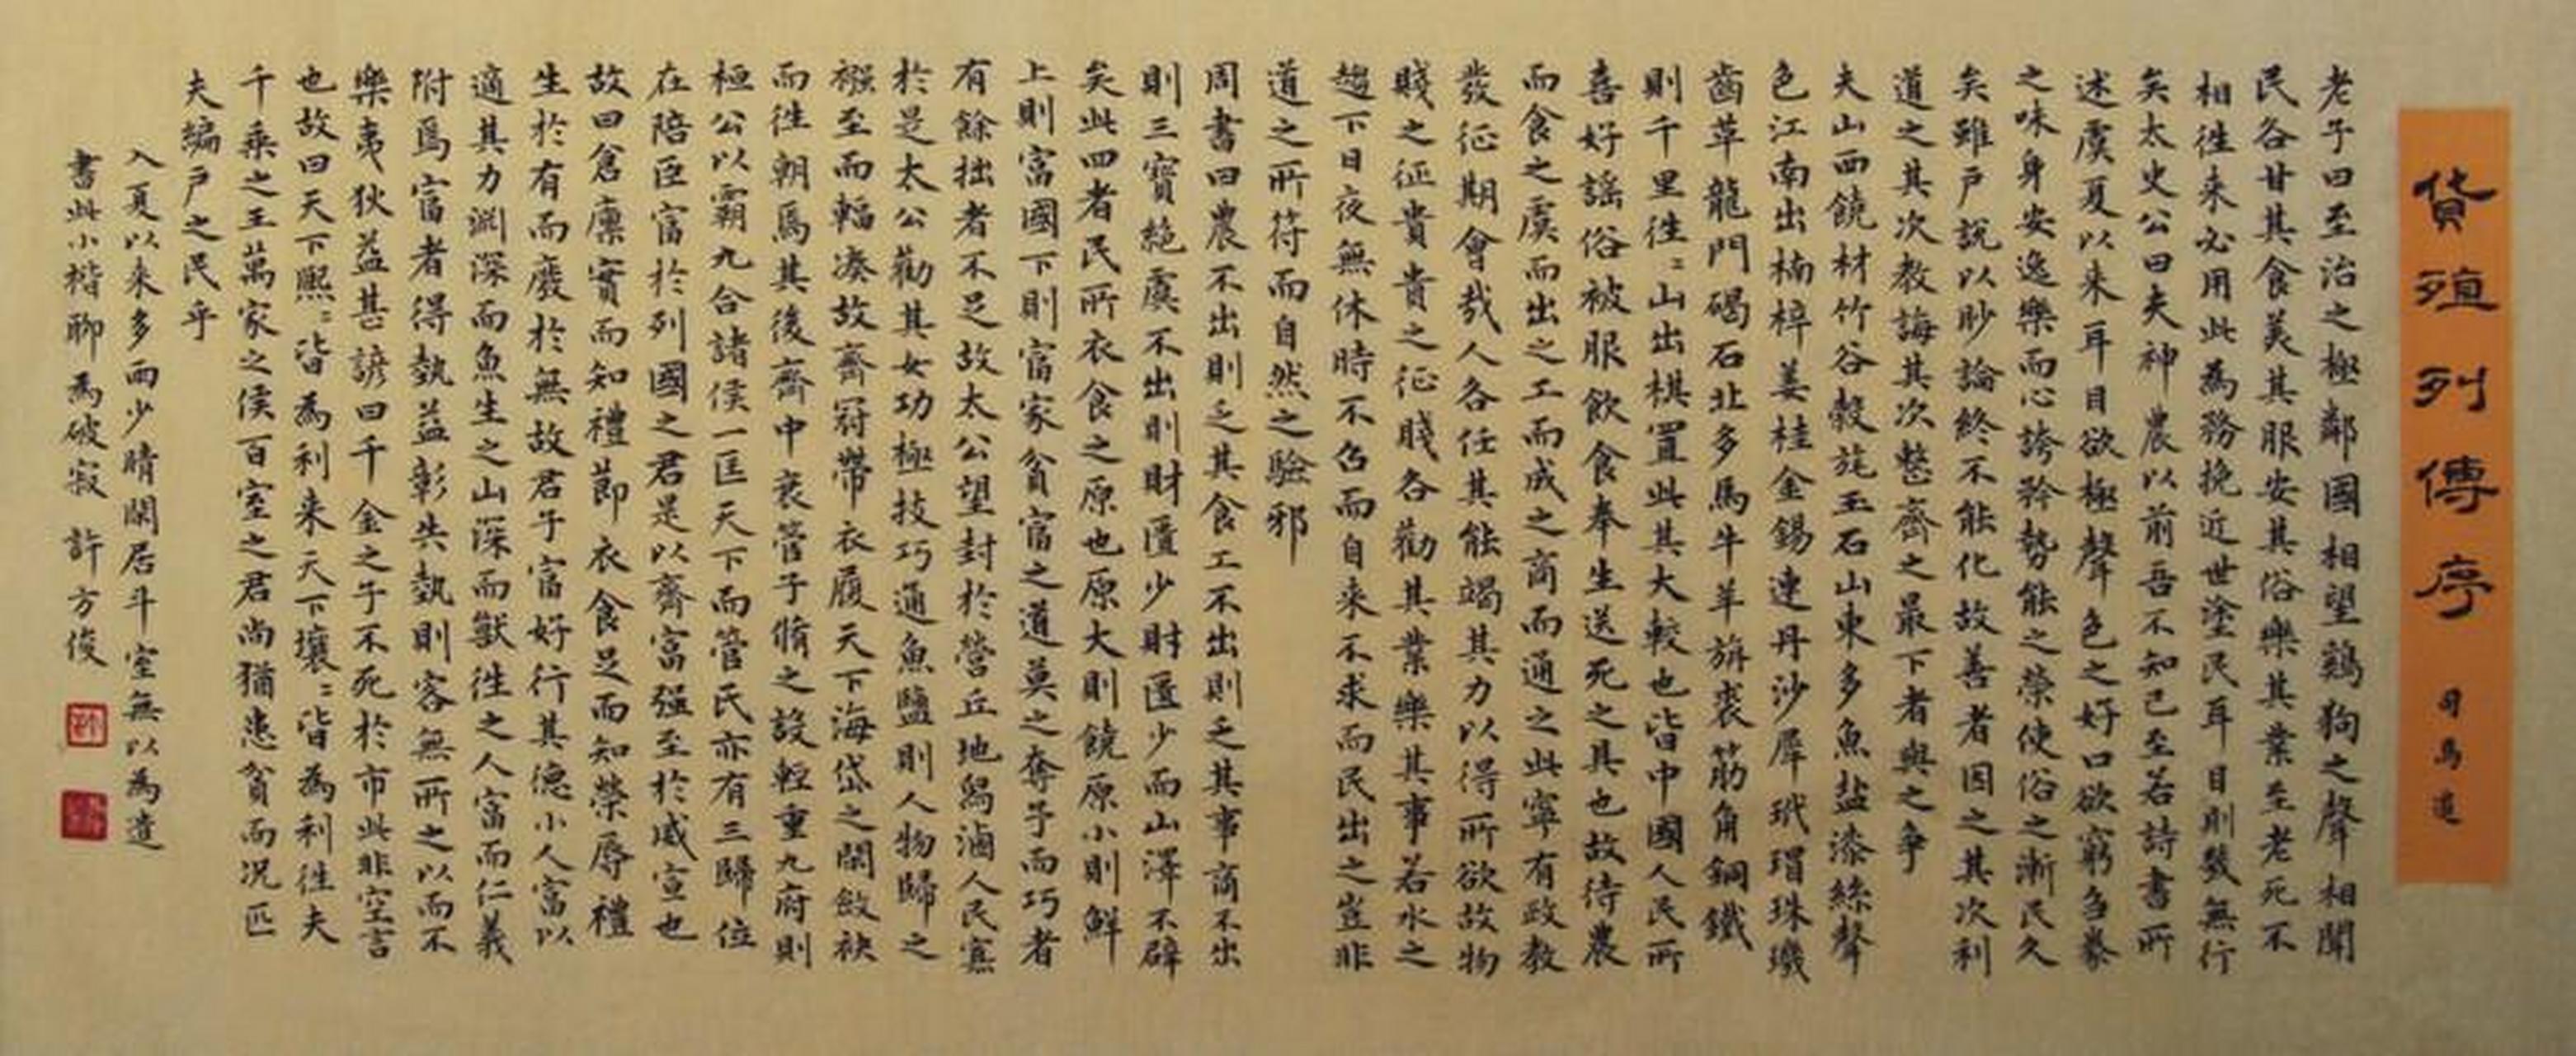 貨殖列傳序 司馬遷
老子曰至治之極鄰國相望鷄狗之聲相聞
民各甘其食美其服安其俗樂其業至老死不
相徃来必用此為務挽近世塗民耳目則幾無行
矣太史公曰夫神農以前吾不知已至若詩書所
述虞夏以来耳目欲極聲色之好口欲窮芻豢
之味身安逸樂而心誇矜勢能之榮使俗之漸民久
矣雖戶說以眇論終不能化故善者因之其次利
道之其次教誨其次整齊之最下者與之争
夫山西饒材竹谷榖旄玉石山東多魚盐漆絲聲
色江南出楠梓姜桂金錫連丹沙犀玳瑁珠璣
齒革龍門碣石北多馬牛羊旃裘筋角銅鐵
則千里徃﹦山出棋置此其大較也皆中國人民所
喜好謡俗被服飲食奉生送死之具也故待農
而食之虞而出之工而成之商而通之此寧有政教
發征期會哉人各任其能竭其力以得所欲故物
賤之征貴貴之征賤各勸其業樂其事若水之
趨下日夜無休時不召而自来不求而民出之豈非
道之所符而自然之驗邪
周書曰農不出則乏其食工不出則乏其事商不出
則三寶絶虞不出則財匱少財匱少而山澤不辟
矣此四者民所衣食之原也原大則饒原小則鮮
上則富國下則富家貧富之道莫之奪予而巧者
有餘拙者不足故太公望封於營丘地舄滷人民寡
於是太公勸其女功極技巧通魚鹽則人物歸之
襁至而輻凑故齊冠帶衣履天下海岱之閒斂袂
而徃朝焉其後齊中衰管子脩之設輕重九府則
桓公以霸九合諸侯一匡天下而管氏亦有三歸位
在陪臣富於列國之君是以齊富强至於威宣也
故曰倉廪實而知禮節衣食足而知榮辱禮
生於有而廢於無故君子富好行其德小人富以
適其力淵深而魚生之山深而獸徃之人富而仁義
附焉富者得埶益彰失埶則客無所之以而不
樂夷狄益甚諺曰千金之子不死於市此非空言
也故曰天下熙﹦皆為利来天下壤﹦皆為利徃夫
千乘之王萬家之侯百室之君尚猶患貧而况匹
夫編戶之民乎
入夏以来多雨少晴閑居斗室無以為遣
書此小楷聊為破寂 許方俊